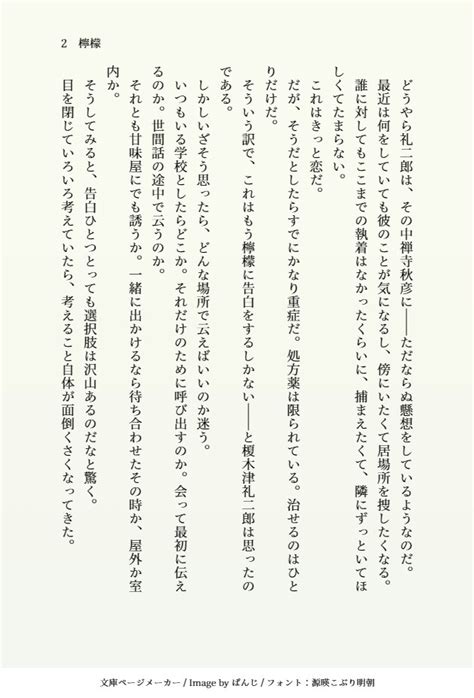 2　檸檬
どうやら礼二郎は、その中禅寺秋彦に――ただならぬ懸想をしているようなのだ。
最近は何をしていても彼のことが気になるし、傍にいたくて居場所を捜したくなる。
誰に対してもここまでの執着はなかったくらいに、捕まえたくて、隣にずっといてほ
しくてたまらない。
これはきっと恋だ。
だが、そうだとしたらすでにかなり重症だ。処方薬は限られている。治せるのはひと
りだけだ。
そういう訳で、これはもう檸檬に告白をするしかない――と榎木津礼二郎は思ったの
である。
しかしいざそう思ったら、どんな場所で云えばいいのか迷う。
いつもいる学校としたらどこか。それだけのために呼び出すのか。会って最初に伝え
るのか。世間話の途中で云うのか。
それとも甘味屋にでも誘うか。一緒に出かけるなら待ち合わせたその時か、屋外か室
内か。
そうしてみると、告白ひとつとっても選択肢は沢山あるのだなと驚く。
目を閉じていろいろ考えていたら、考えること自体が面倒くさくなってきた。
文庫ページメーカー / Image by ぱんじ / フォント：源暎こぶり明朝